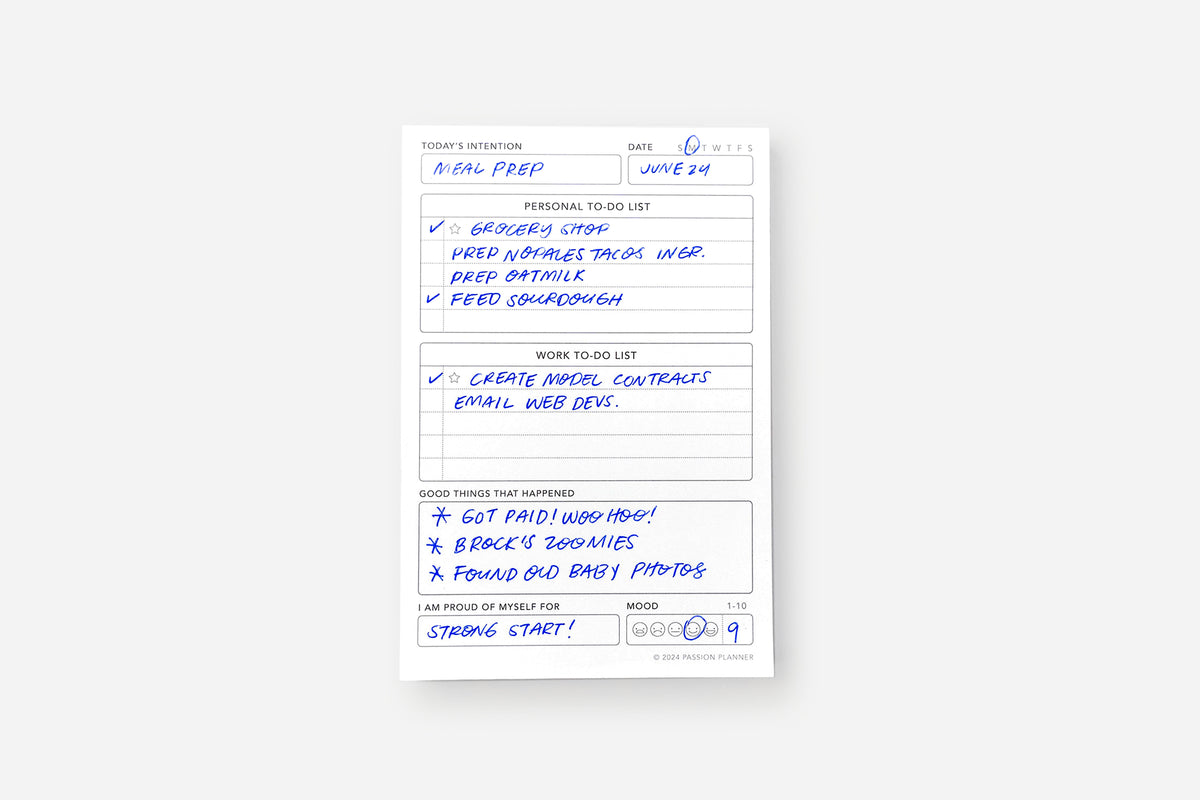 TODAY'S INTENTION
DATE S M T W T F S
MEAL PREP
JUNE 24
PERSONAL TO-DO LIST
✓ ☆ GROCERY SHOP
PREP NOPALES TACOS INGR.
PREP OATMILK
✓ FEED SOURDOUGH
WORK TO-DO LIST
✓ ☆ CREATE MODEL CONTRACTS
EMAIL WEB DEVS.
GOOD THINGS THAT HAPPENED
* GOT PAID! WOO HOO!
* BROCK'S ZOOMIES
* FOUND OLD BABY PHOTOS
I AM PROUD OF MYSELF FOR
MOOD 1-10
STRONG START!
9
© 2024 PASSION PLANNER